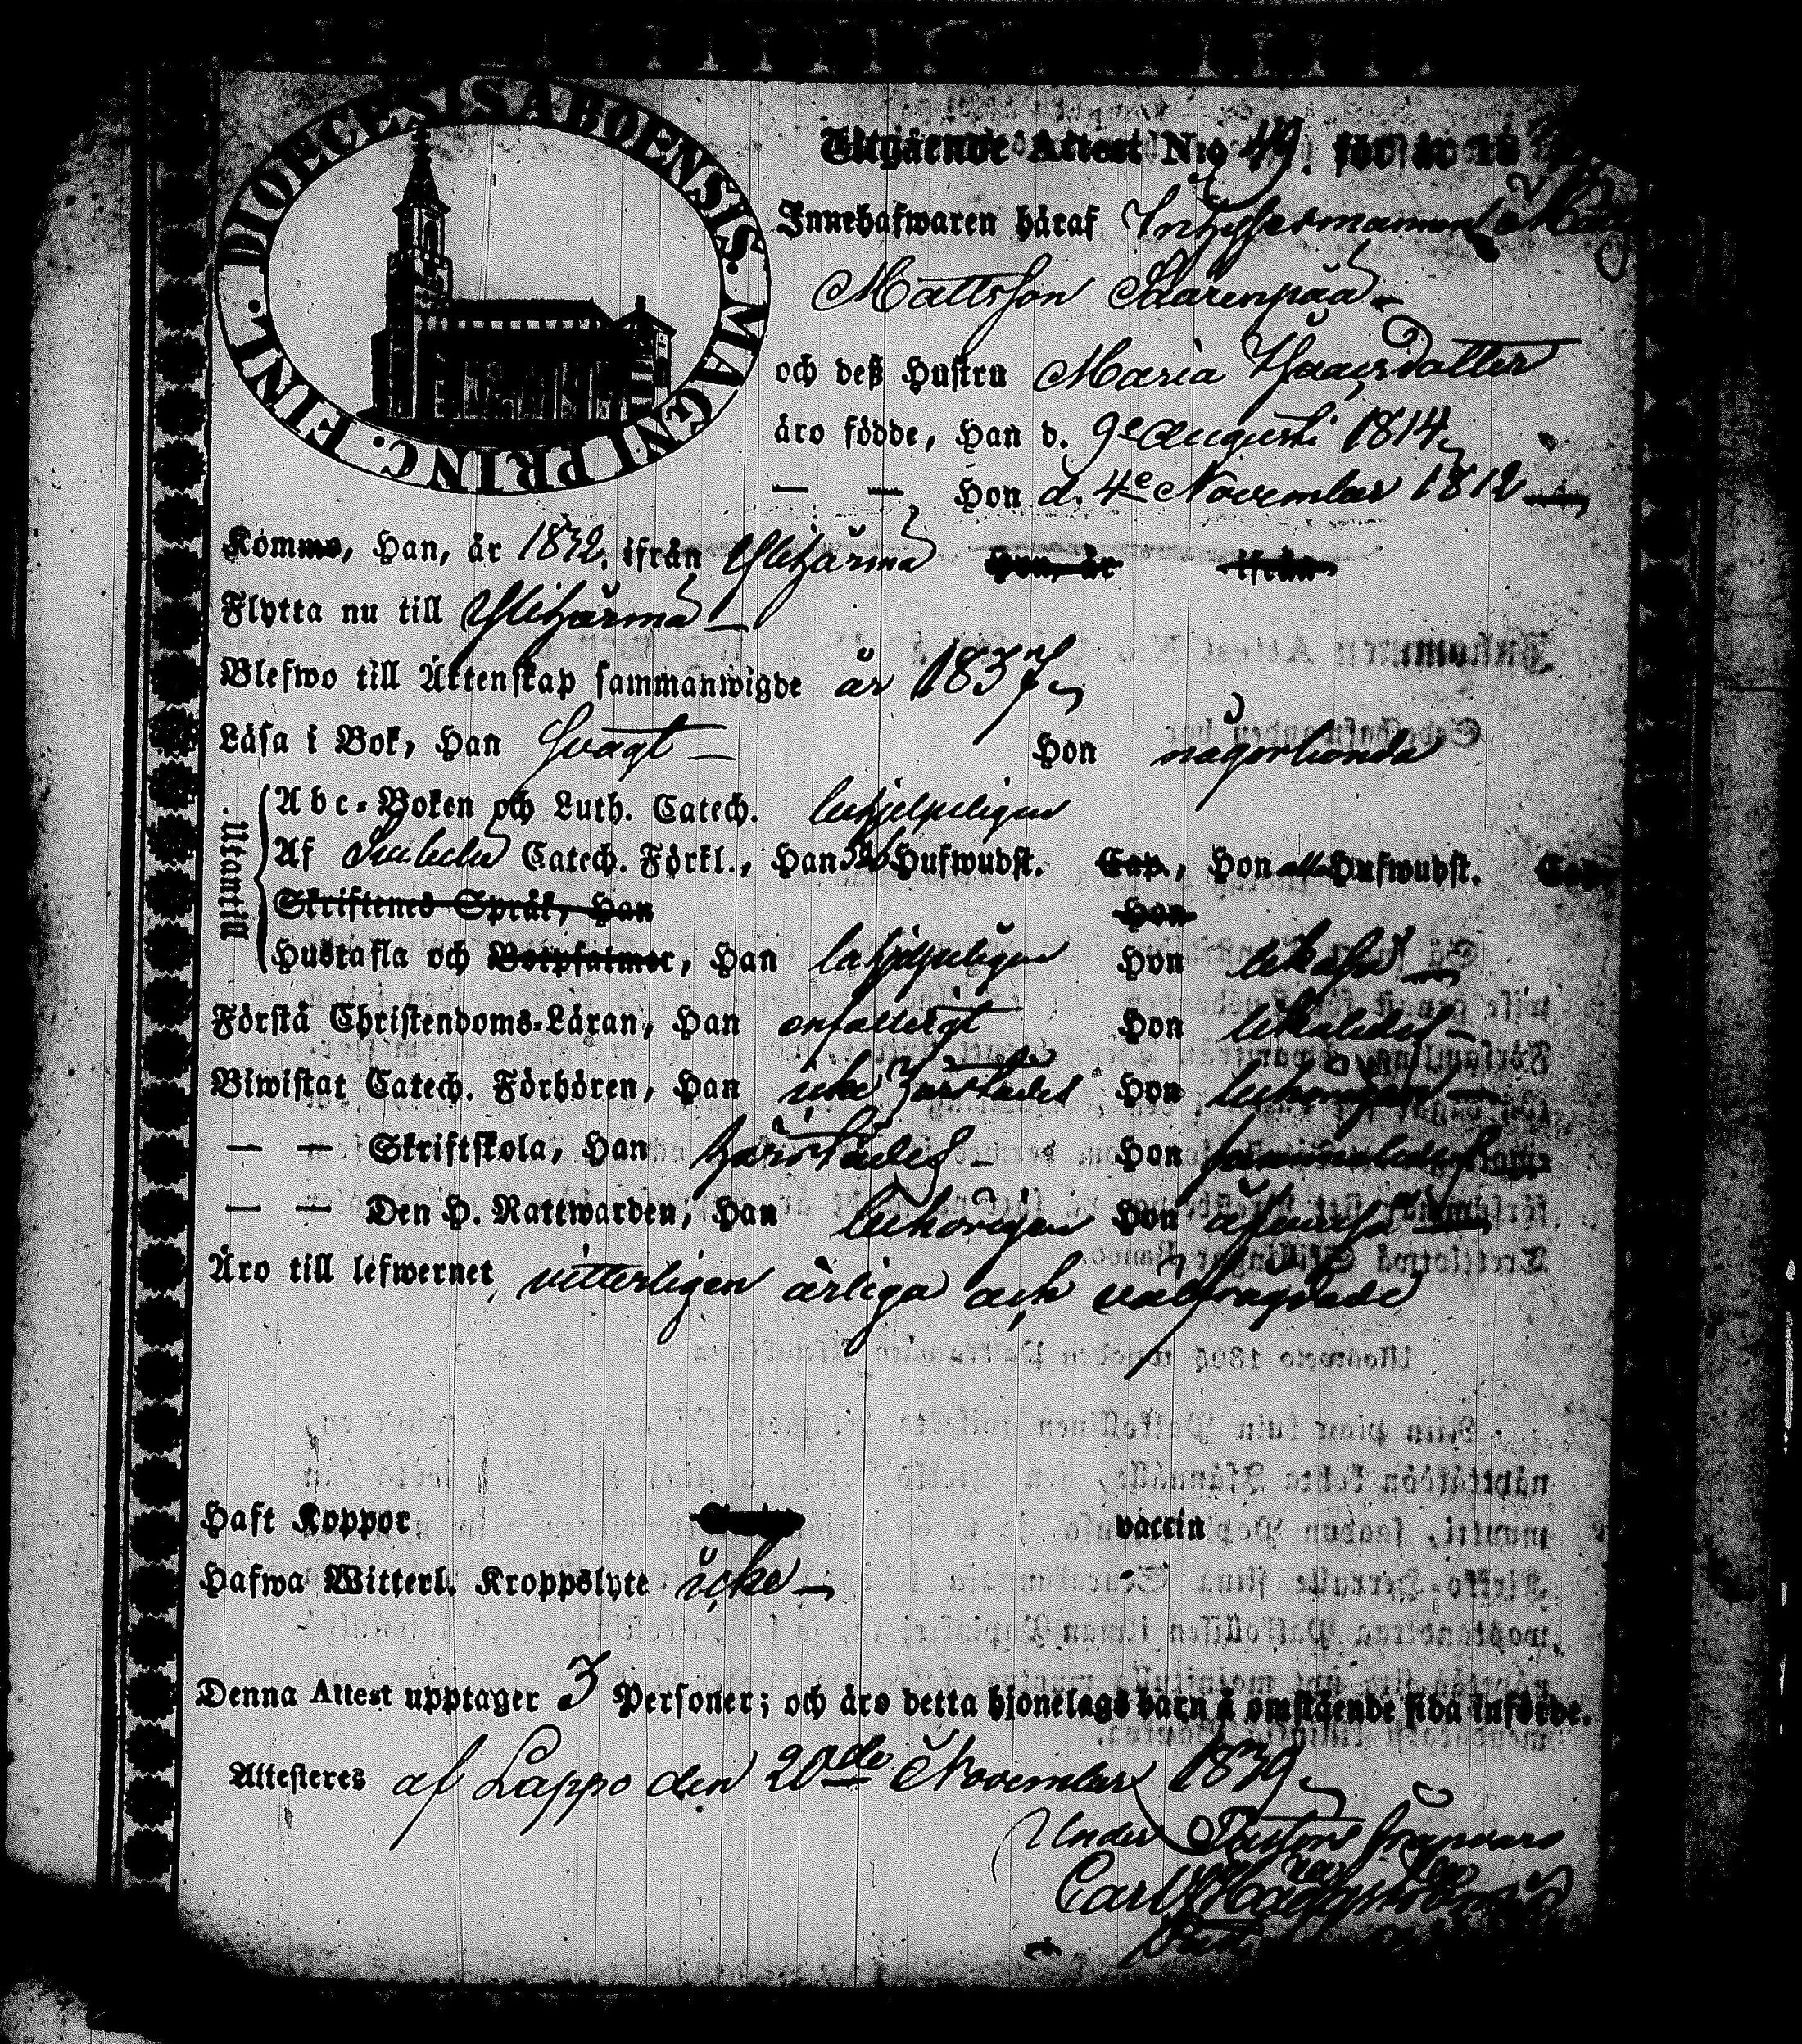 DIOECESIS ABOENSIS. MAGNI PRINC. FINL.
Utgående Attest N:o 49. för år 18
Innehafwaren häraf Inhysesmannen
Mattsson Saarenpää
och deß Hustru Maria Isaacsdotter
äro födde, Han d. 9e Augusti 1814.
— — Hon d. 4e November 1812
Komme, Han, år 1832. ifrån Ylihärmä Hon, år ifrån
Flytta nu till Ylihärmä
Blefwo till Äktenskap sammanwigde år 1837.
Läsa i Bok, Han svagt Hon någorlunda
Utantill
Abc-Boken och Luth. Catech. behjelpeligen
Af Svebelii Catech. Förkl., Han Hufwudst. Cap., Hon alla Hufwudst. Cap.
Skriftenes Språk, Han Hon
Hustafla och Botpsalmer, Han behjelpeligen Hon likaså
Förstå Christendoms-Läran, Han enfalligt Hon likaledes
Biwistat Catech. Förhören, Han icke härstädes Hon behörigen
— — Skriftskola, Han härstädes Hon sammaledes
— — Den H. Nattwarden, Han behörigen Hon äfvenså
Äro till lefwernet vitterligen ärliga och välfrägdade
Haft Koppor vaccin
Hafwa Witterl. Kroppslyte icke
Denna Attest upptager 3 Personer; och äro detta hjonelags barn å omstående sida införde.
Attesteres af Lappo den 20de November 1839.
Under Pastors frånvaro
Carl Häggström